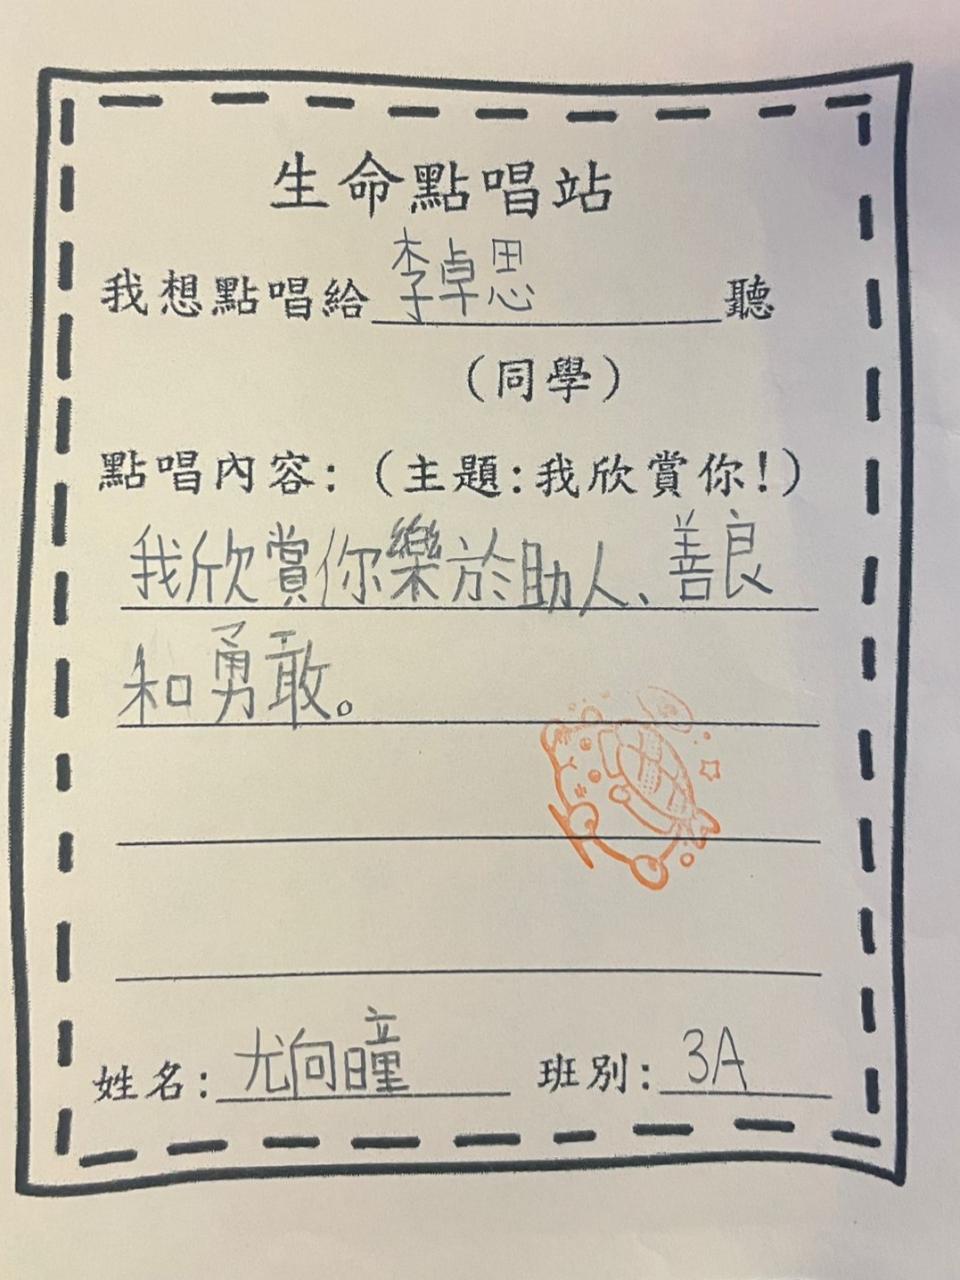 生命點唱站
我想點唱給李卓思聽
(同學)
點唱內容:(主題:我欣賞你!)
我欣賞你樂於助人、善良
和勇敢。
姓名:尤向曈 班別:3A